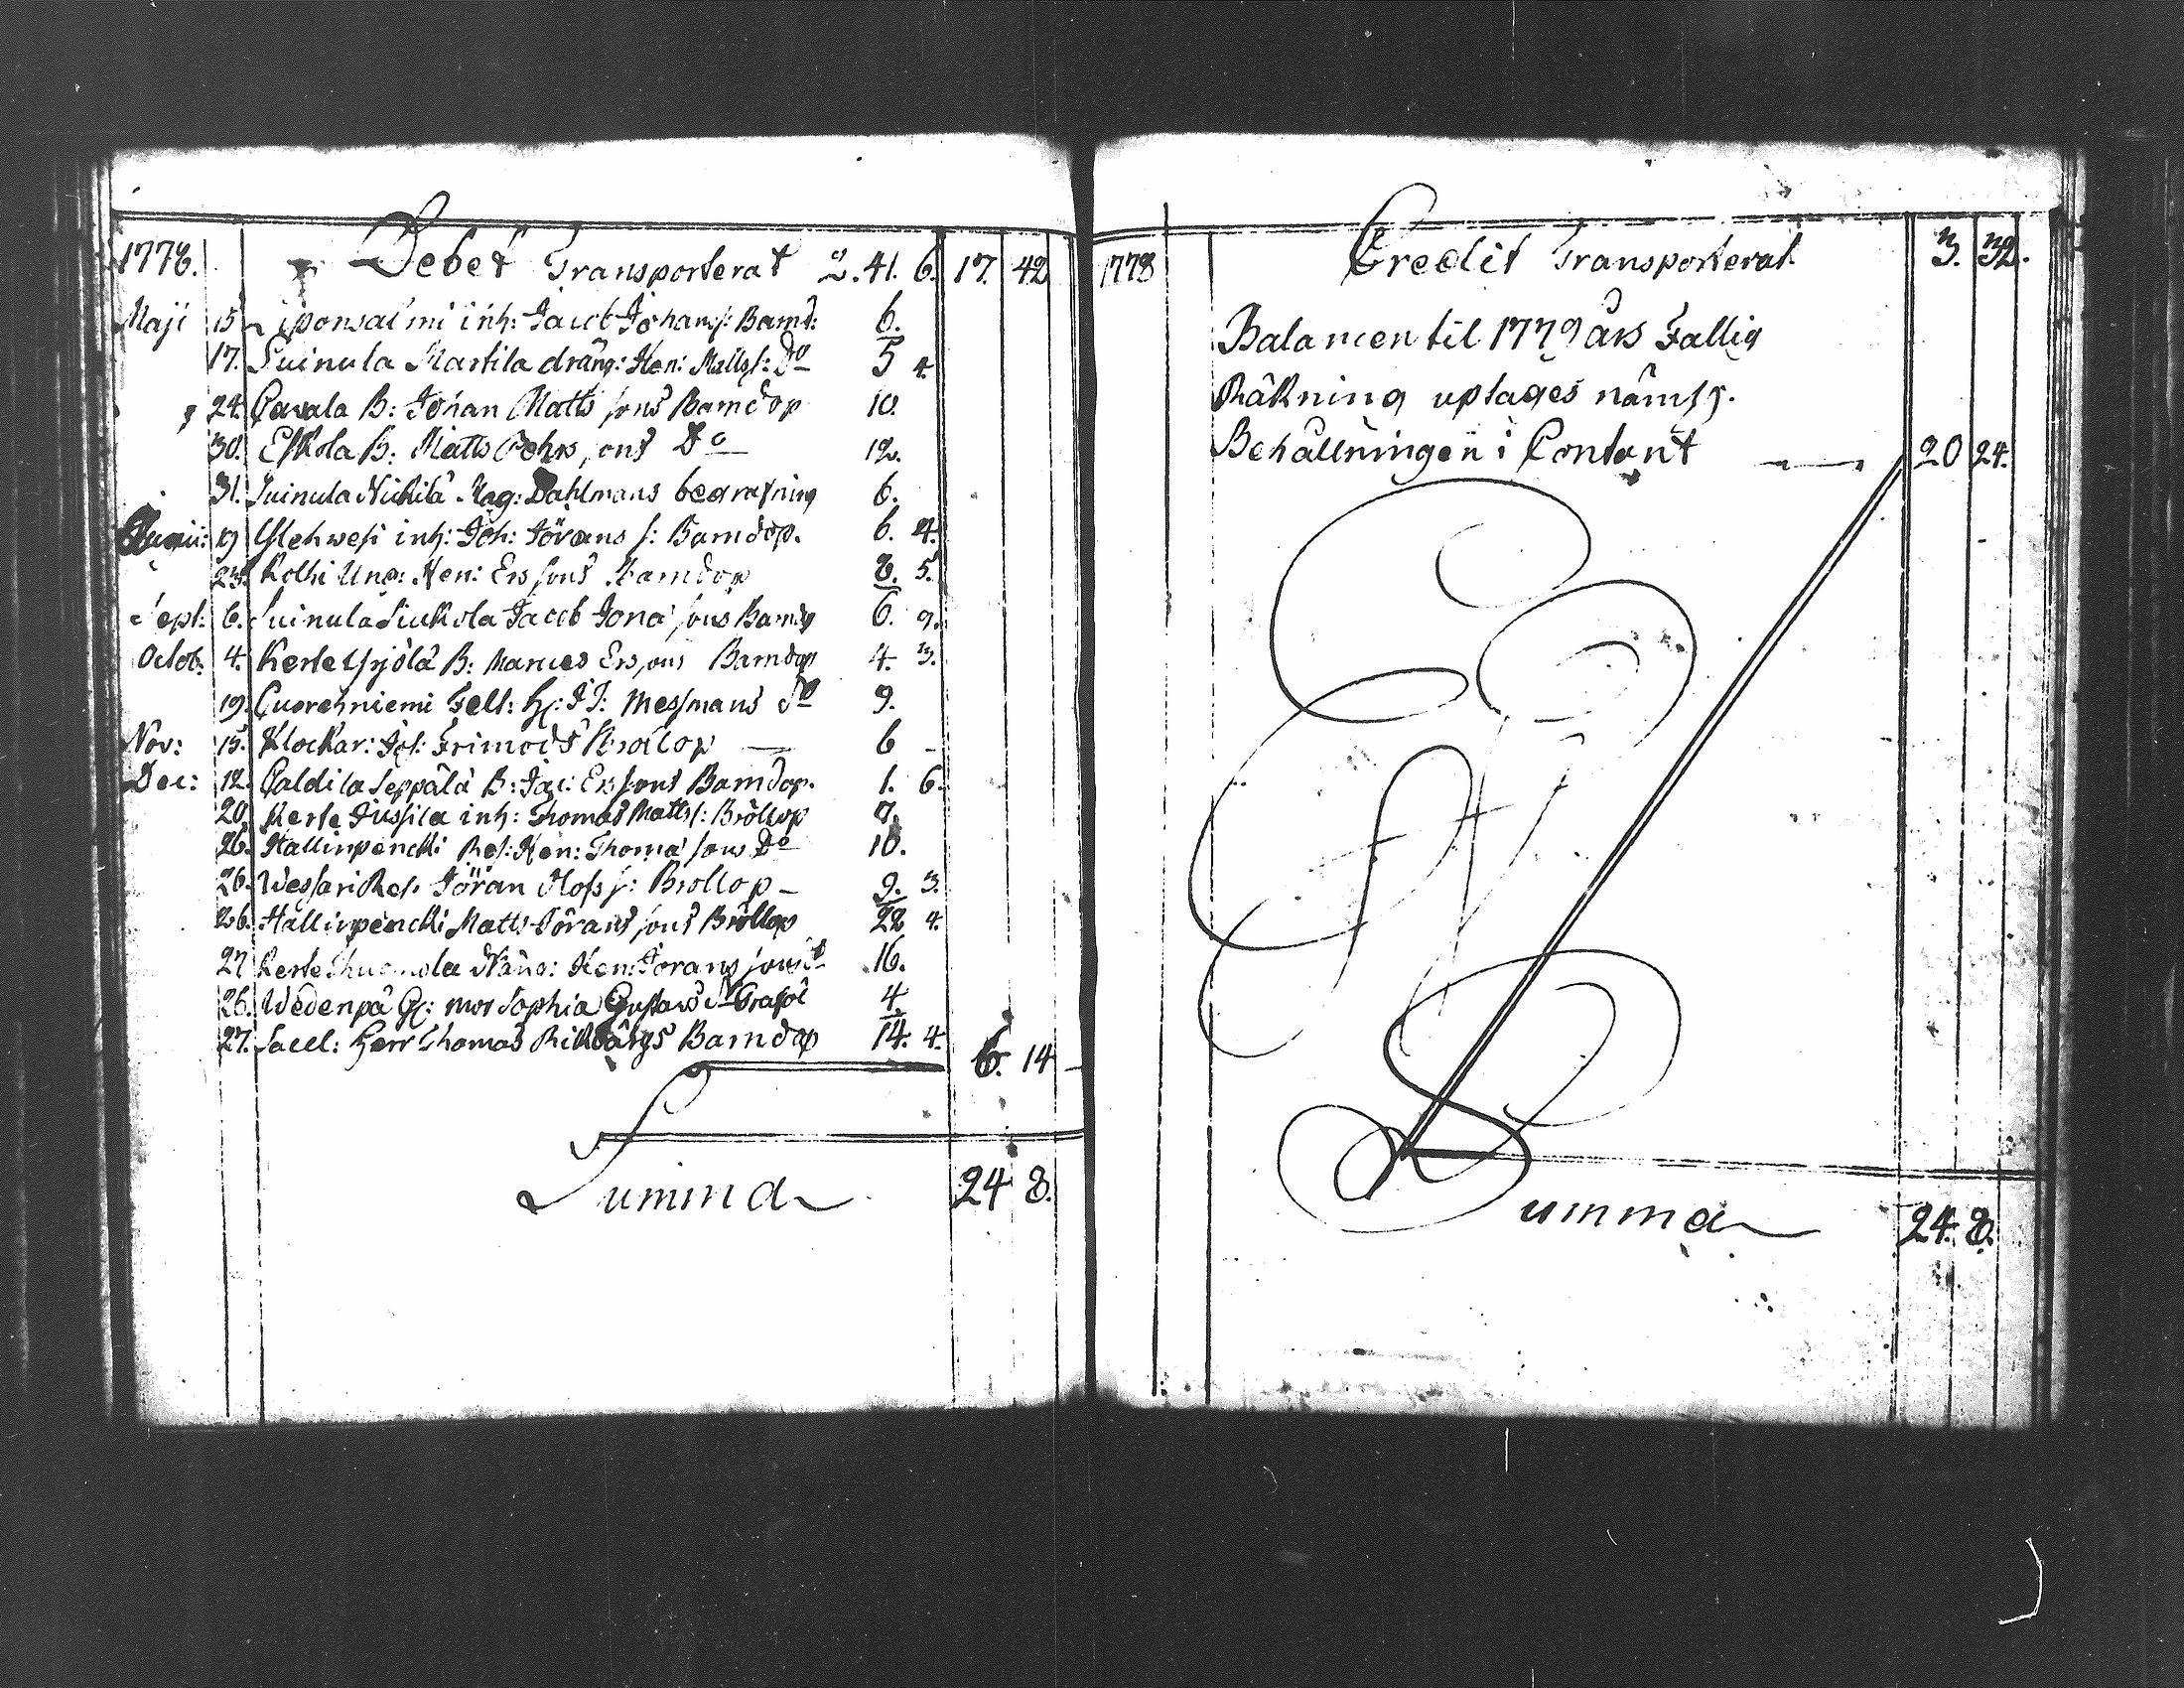 1778. Debet Transporterat 2. 41. 6. 17. 42
Maji 15 Siponsalmi inh: Jacob Johanss: Barnd: 6.
17. Suinula Martila dräng: Hen: Mattss: Do 5 4.
24. Pavala B: Johan Matts sons Barndop 10.
30. Eskola B: Matts Pehrs sons Do 12.
31. Suinula Nickilä Mag: Dahlmans begrafning 6.
Junii: 19 Ylehwesi inh: Joh: Jörans s: Barndop. 6. 4.
23. Kolhi Hen: Ers sons Barndop 8. 5.
Sept: 6. Suinula Siukola Jacob Jona sons Barndop 6. 9.
Octob: 4. Kerte Yrjölä B: Marcus Ersons Barndop 4. 3.
19. Cuorehniemi Felt: H: J J: Messmans Do 9.
Nov: 15. Klockar: Joh: Frimods Bröllop 6 -
Dec: 12. Caldila Seppälä B: Jac: Ers sons Barndop. 1. 6.
20. Kerte Jussila inh: Thomas Matts s: Bröllop 7.
26. Hallinpencki Ref: Hen: Thoma sons Do 10.
26. Wessari Ref. Jöran Olofs s: Bröllop - 9. 3.
26. Hallinpencki Matts Jörans sons Bröllop 22 4.
27 Kerte Hen: Jorans sons Do 16.
26. Wedenpä mor Sophia Gustavsd Grafol 4
27. Sacel: Herr Thomas Rikbärgs Barndop 14. 4. 6. 14 -
Summa 24 8.
1778 Credit Transporterat 3. 32.
Balancen til 1779 års Fallig
Räkning uptages nämlg.
Behållningen i Contant 20 24.
Summa 24. 8.